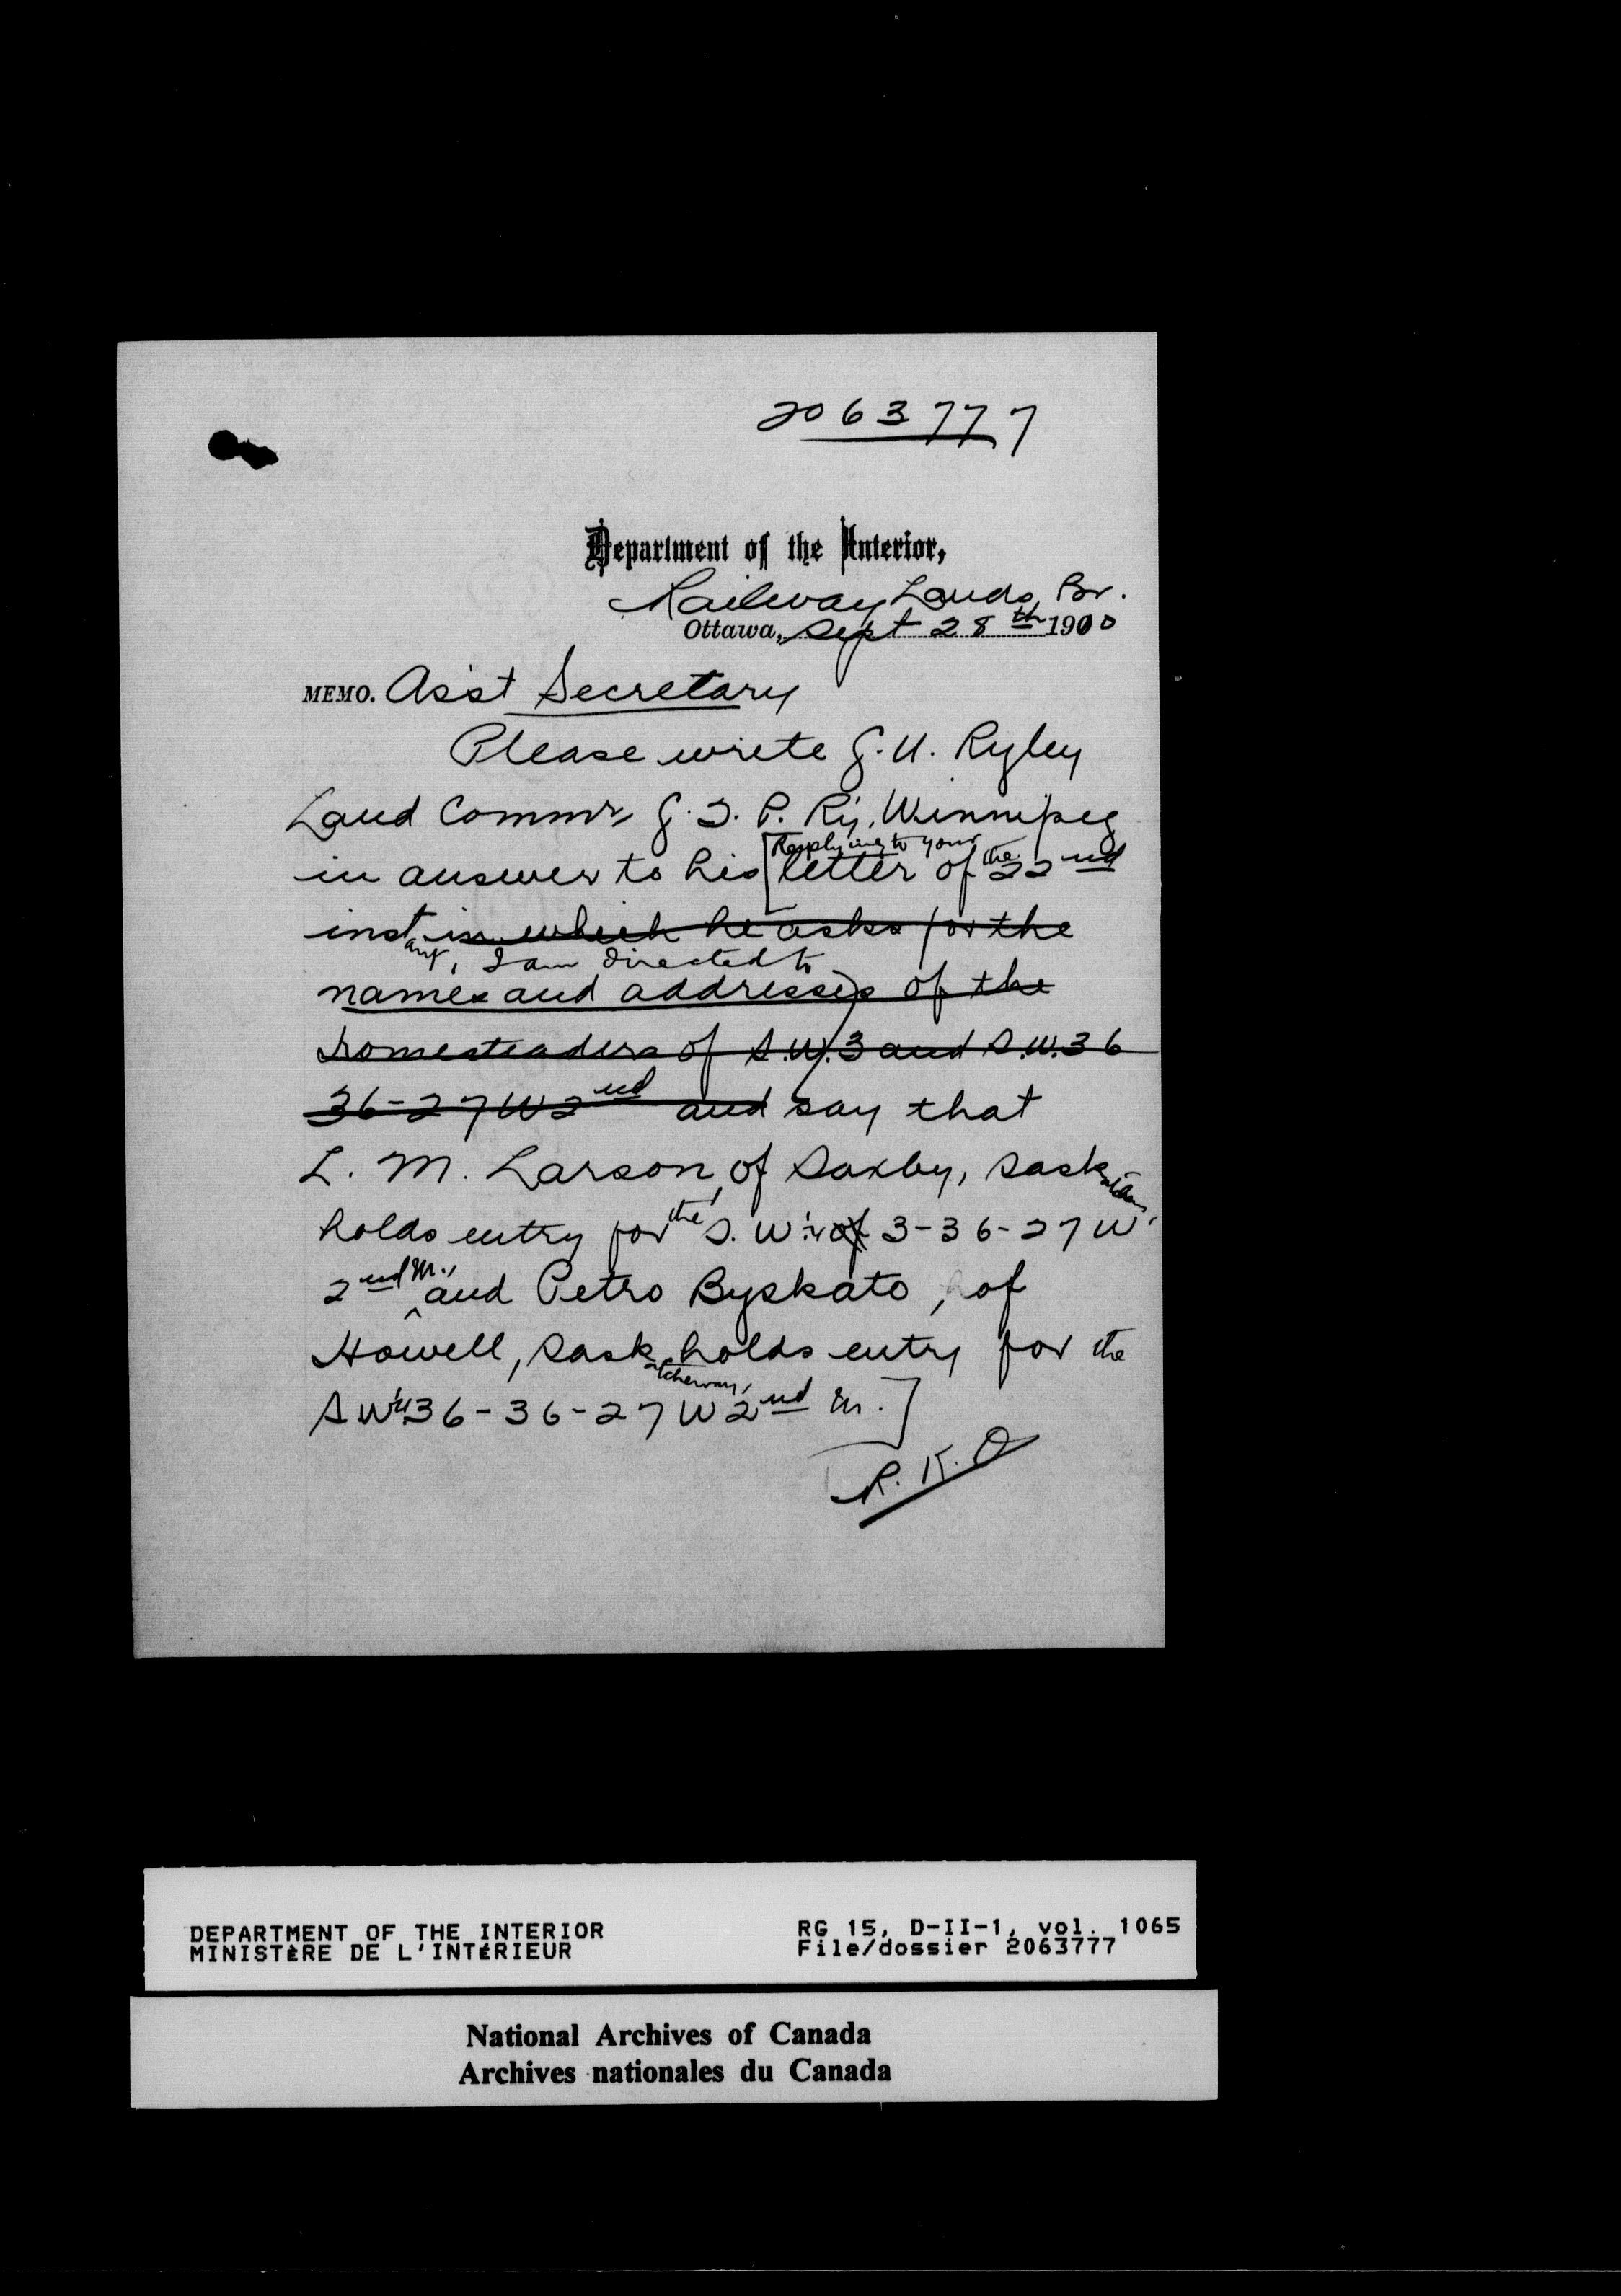 2063777
Department of the Interior,
Railway Lands Br.
Ottawa, Sept 28th 1900
MEMO. Ass't Secretary
Please write G. U. Ryley
Land Comm'r G. T. P. Ry, Winnipeg
Replying to your
in answer to his [letter of the 22nd
inst in which he asks for the
ant, I am directed to
names and addresses of the
homesteaders of S.W. 3 and S.W. 36
36-27 W 2nd and say that
L. M. Larson, of Saxby, Sask
holds entry for the S. W. ¼ of 3-36-27 W
2nd M., and Petro Byskato, of
Howell, Saskatchewan, holds entry for the
S W ¼ 36-36-27 W 2nd M.]
R. K. O
DEPARTMENT OF THE INTERIOR RG 15, D-II-1, vol. 1065
MINISTÈRE DE L'INTÉRIEUR File/dossier 2063777
National Archives of Canada
Archives nationales du Canada